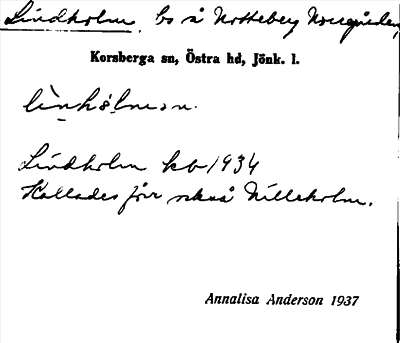 Lindholm, bs å Notteberg Norrgården
Korsberga sn, Östra hd, Jönk. l.
Lindholm kb 1934
Kallades förr också Nilleholm.
Annalisa Anderson 1937